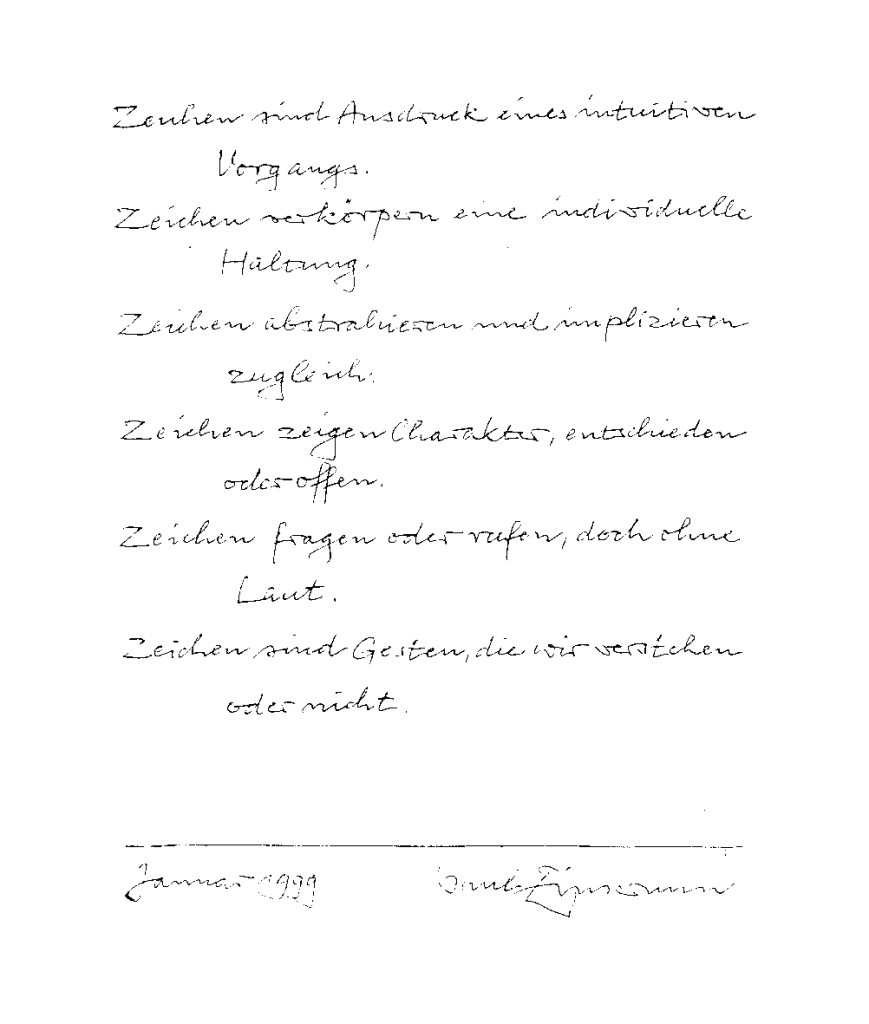 Zeichen sind Ausdruck eines intuitiven
Vorgangs.
Zeichen verkörpern eine individuelle
Haltung.
Zeichen abstrahieren und implizieren
zugleich.
Zeichen zeigen Charakter, entschieden
oder offen.
Zeichen fragen oder rufen, doch ohne
Laut.
Zeichen sind Gesten, die wir verstehen
oder nicht.
Januar 1999